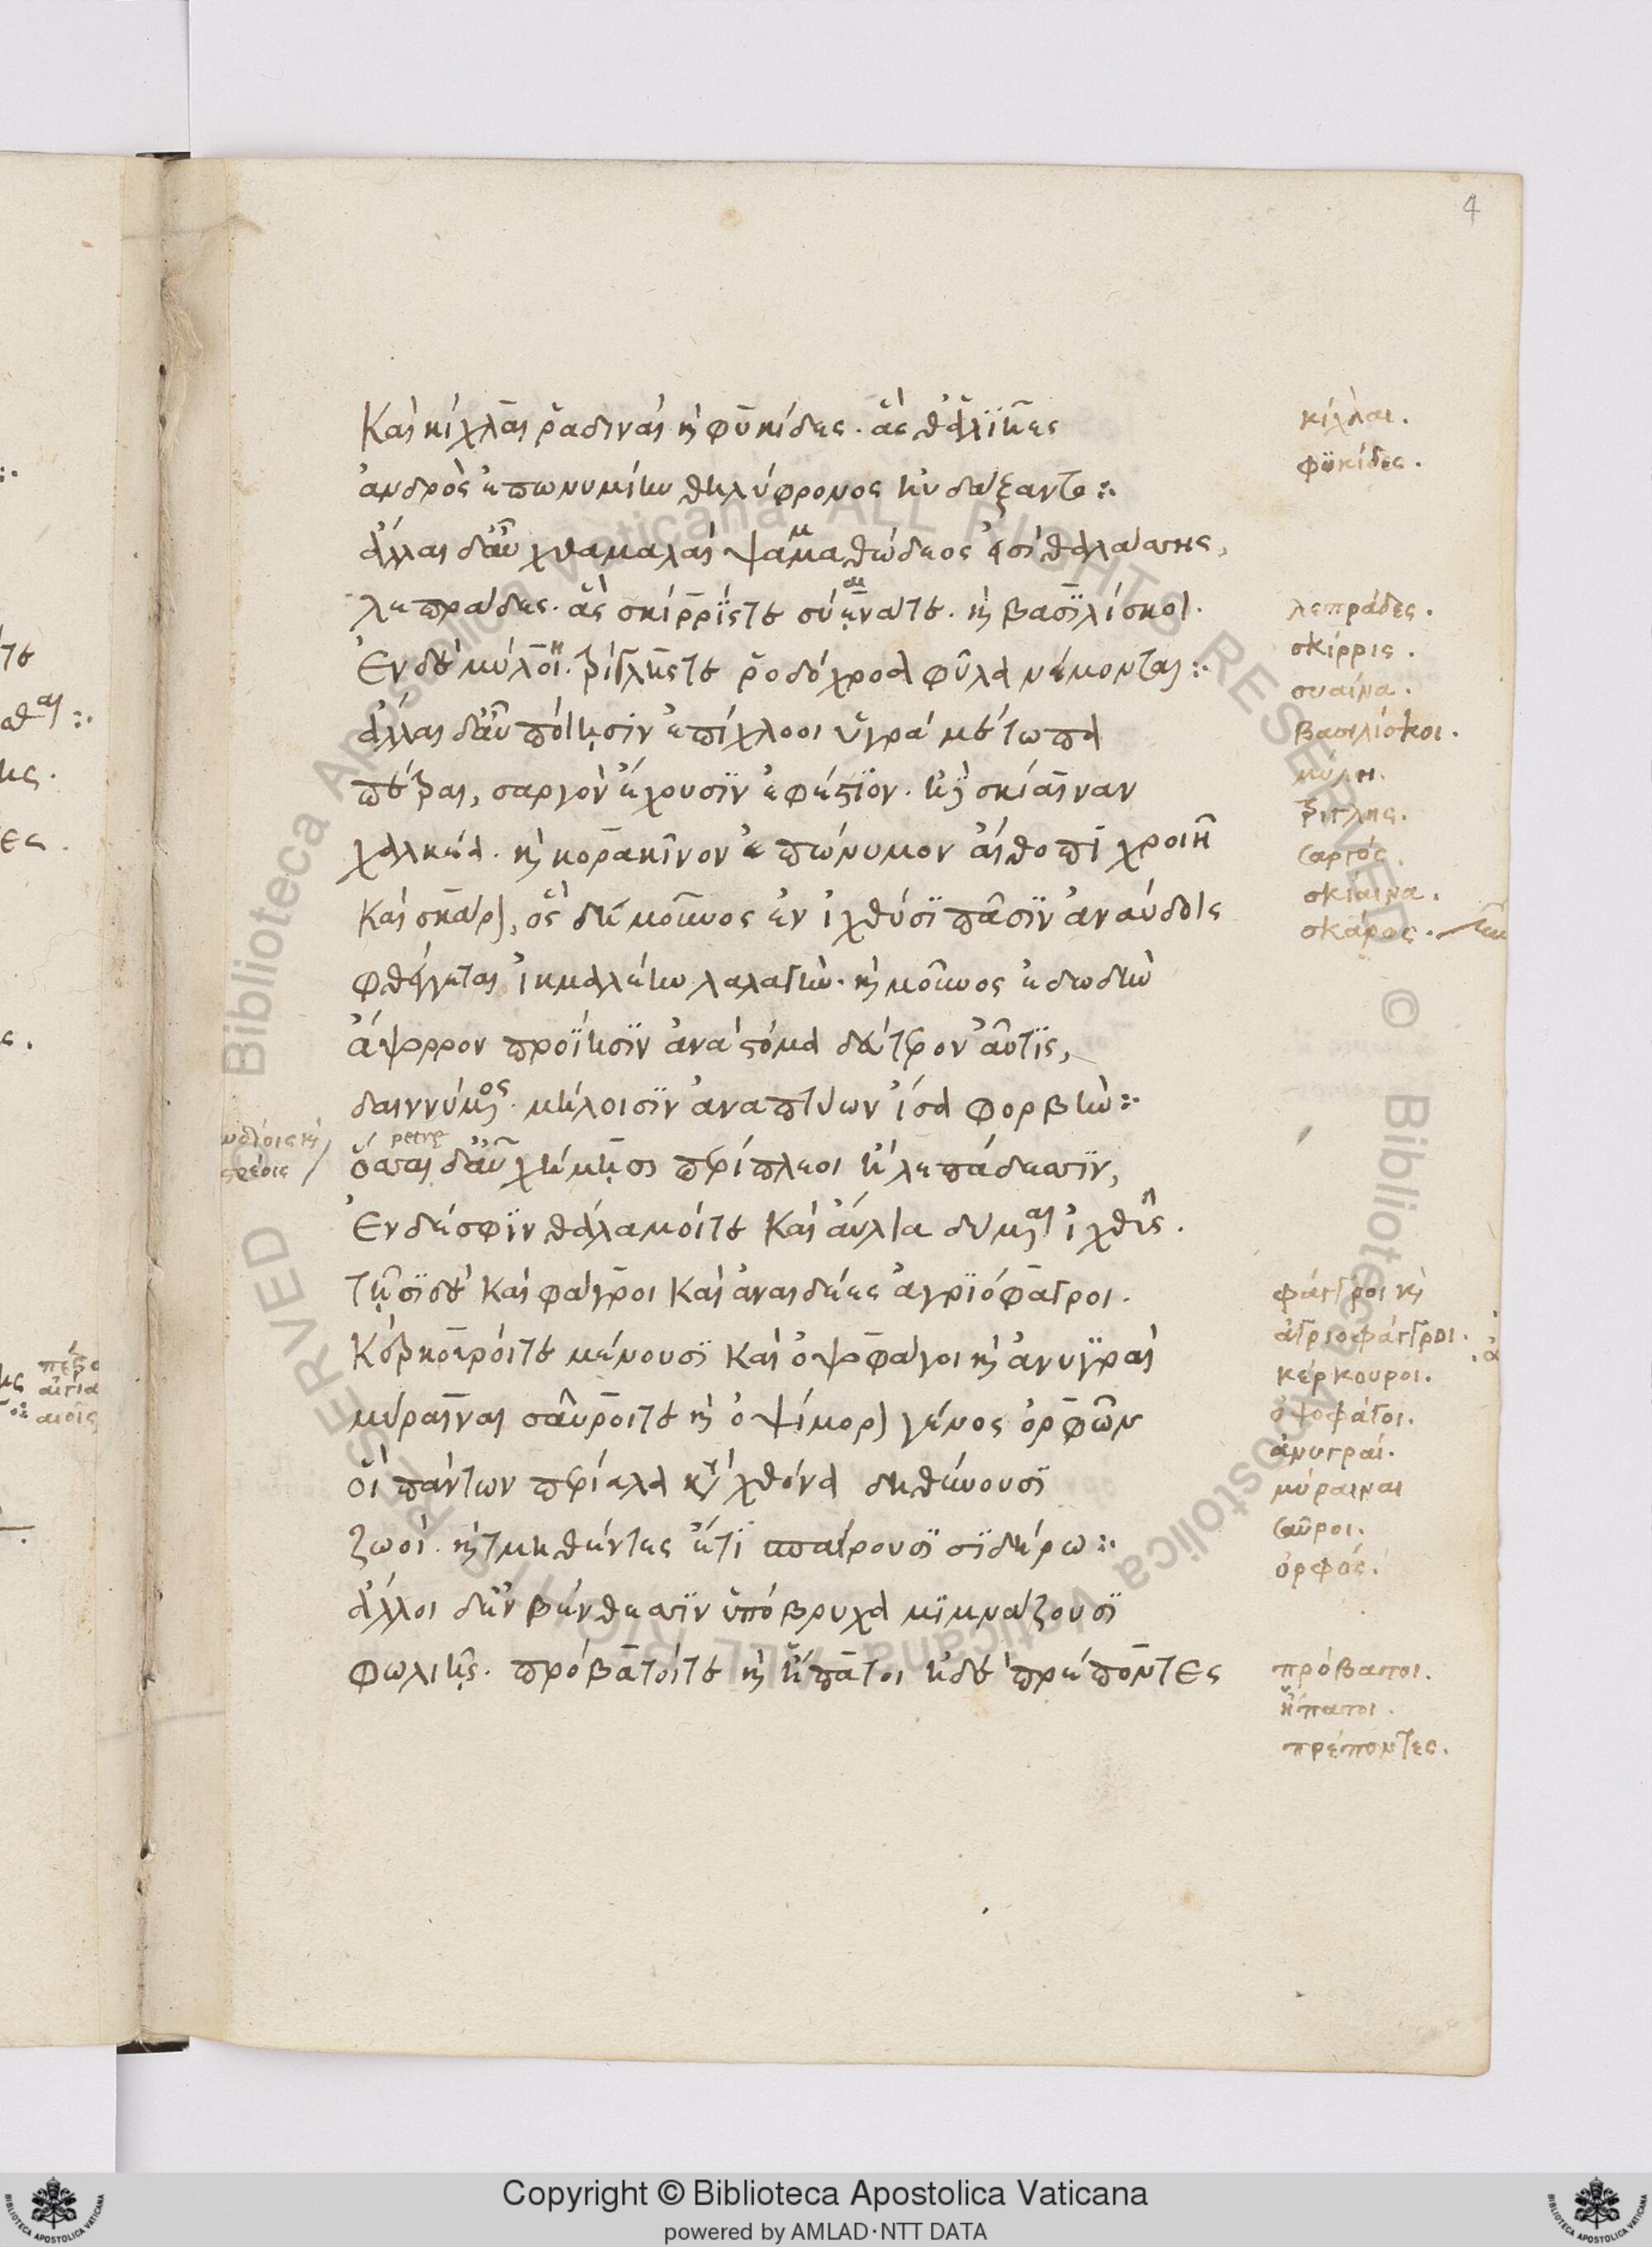 4
Καὶ κίχλαι ῥαδιναὶ κὴ φυκίδες. ἃς θ᾽ ἁλιῆες
ἀνδρὸς ἐπωνυμίην θηλύφρονος ηὐδάξαντο :·
Ἄλλαι δ᾽ αὖ χθαμαλαὶ ψαμμαθώδεος εἰσὶ θαλάσσης,
λεπράδες. ἃς σκίρρίς τε σύαινά τε. κὴ βασιλίσκοι.
Ἐν δὲ μύλοι. τρίγλης τε ῥοδόχροα φῦλα νέμονται :·
Ἄλλαι δ᾽ αὖ ποίῃσιν ἐπίχλοοι ὑγρὰ μέτωπα
πέτραι, σαργὸν ἔχουσιν ἐφέστιον. ἠδὲ σκίαιναν
χάλκεα. κὴ κορακῖνον ἐπώνυμον αἴθοπι χροιῇ
Καὶ σκάρον, ὃς δὴ μοῦνος ἐν ἰχθύσι πᾶσιν ἀναύδοις
φθέγγεται ἰκμαλέην λαλαγήν. κὴ μοῦνος ἐδωδὴν
ἄψορρον προΐησιν ἀνὰ στόμα δεύτερον αὖτις,
δαιννύμενος. μήλοισιν ἀναπτύων ἴσα φορβήν :·
petre
ὅσσαι δ᾽ αὖ χήμῃσι περίπλεοι ἢ λεπάδεσσιν,
Ἐν δέ σφιν θάλαμοί τε Καὶ αὔλια δύμεναι ἰχθῦς.
Τῇσι δὲ Καὶ φάγροι Καὶ ἀναιδέες ἀγριόφαγροι.
Κέρκουροί τε μένουσι Καὶ ὀψοφάγοι κὴ ἀνυγραὶ
μύραιναι σαῦροί τε κὴ ὀψίμορον γένος ὀρφῶν
οἳ πάντων περίαλα κατὰ χθόνα δηθύνουσι
ζωοί. κὴ τμηθέντες ἔτι σπαίρουσι σιδήρω :·
ἄλλοι δ᾽ ἐν βένθεσσιν ὑπόβρυχα μιμνάζουσι
φωλιῆς. πρόβατοί τε κὴ ἥπατοι ἠδὲ πρέποντες
κίχλαι.
φυκίδες.
λεπράδες.
σκίρρις.
συαίνα.
βασιλίσκοι.
μύλη.
τρίγλης.
σαργός.
σκίαινα.
σκάρος.
φάγγροι κὴ
ἀγριοφάγγροι.
κέρκουροι.
ὀψοφάγοι.
ἀνυγραί.
μύραιναι
σαῦροι.
ὀρφός.
πρόβατοι.
ἥπατοι.
πρέποντες.
Copyright © Biblioteca Apostolica Vaticana
powered by AMLAD·NTT DATA